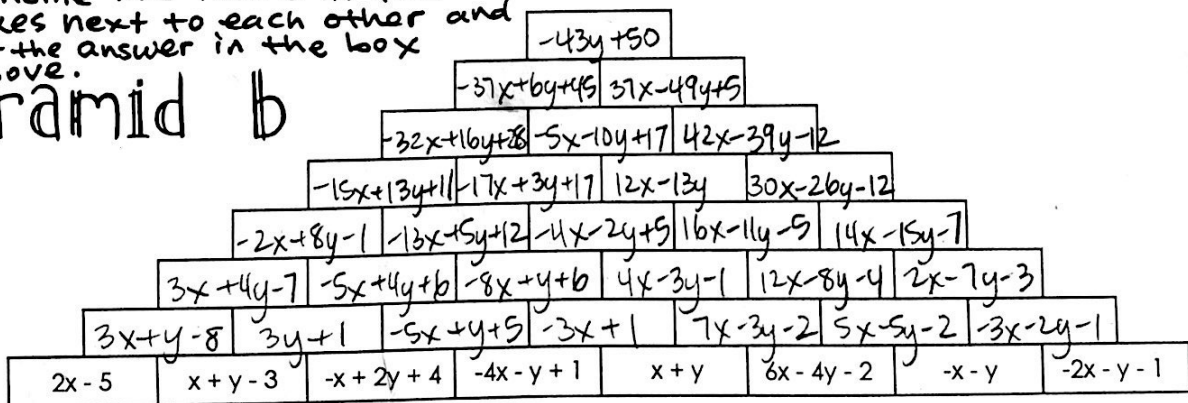 next to each other and
the answer in the box
ramid b
-43y+50
-37x+6y+45 37x-49y+5
-32x+16y+28 -5x-10y+17 42x-39y-12
-15x+13y+11 -17x+3y+17 12x-13y 30x-26y-12
-2x+8y-1 -13x+5y+12 -4x-2y+5 16x-11y-5 14x-15y-7
3x+4y-7 -5x+4y+6 -8x+y+6 4x-3y-1 12x-8y-4 2x-7y-3
3x+y-8 3y+1 -5x+y+5 -3x+1 7x-3y-2 5x-5y-2 -3x-2y-1
2x - 5 x + y - 3 -x + 2y + 4 -4x - y + 1 x + y 6x - 4y - 2 -x - y -2x - y - 1